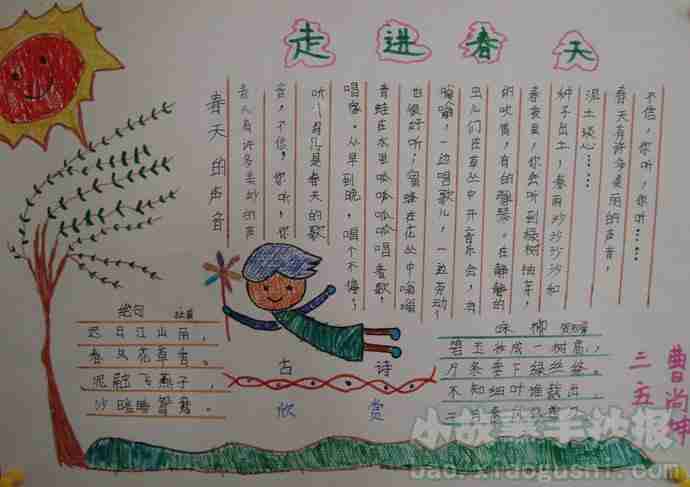 走进春天
春天的声音
春天有许多美妙的声
音,不信,你听,你
听!这儿是春天的歌
唱家。从早到晚,唱个不停!
青蛙在水里呱呱呱呱唱着歌,
也很好听;蜜蜂在花丛中嗡嗡
嗡嗡,一边唱歌儿,一边劳动!
虫儿们在草丛中开音乐会,有
的吹笛,有的弹琴。在静静的
春夜里,你会听到绿树抽芽,
种子出土,春雨沙沙沙沙如
泥土谈心……
春天有许多美丽的声音,
不信,你听,你听……
绝句 杜甫
迟日江山丽,
春风花草香。
泥融飞燕子,
沙暖睡鸳鸯。
古诗
欣赏
咏柳 贺知章
碧玉妆成一树高,
万条垂下绿丝绦。
不知细叶谁裁出,
二月春风
三五
曹尚坤
小故事手抄报
baoxiaogushi.com